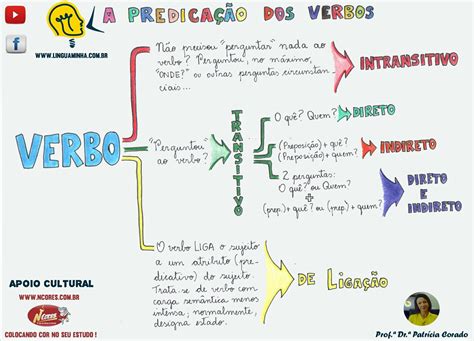 A PREDICAÇÃO DOS VERBOS
WWW.LINGUAMINHA.COM.BR
Não precisou "perguntar" nada ao
verbo? Perguntou, no máximo,
"ONDE?" ou outras perguntas circunstan-
ciais...
INTRANSITIVO
VERBO
"Perguntou"
ao verbo?
TRANSITIVO
O quê? Quem?
DIRETO
(Preposição) + quê?
(Preposição) + quem?
INDIRETO
2 perguntas:
O quê? ou Quem?
+
(prep.) + quê? ou (prep.) + quem?
DIRETO
E
INDIRETO
O verbo LIGA o sujeito
a um atributo (pre-
dicativo) do sujeito.
Trata-se de verbo com
carga semântica menos
intensa, normalmente,
designa estado.
DE LIGAÇÃO
APOIO CULTURAL
WWW.NCORES.COM.BR
Ncores
COLOCANDO COR NO SEU ESTUDO !
Prof.ª Dr.ª Patrícia Corado